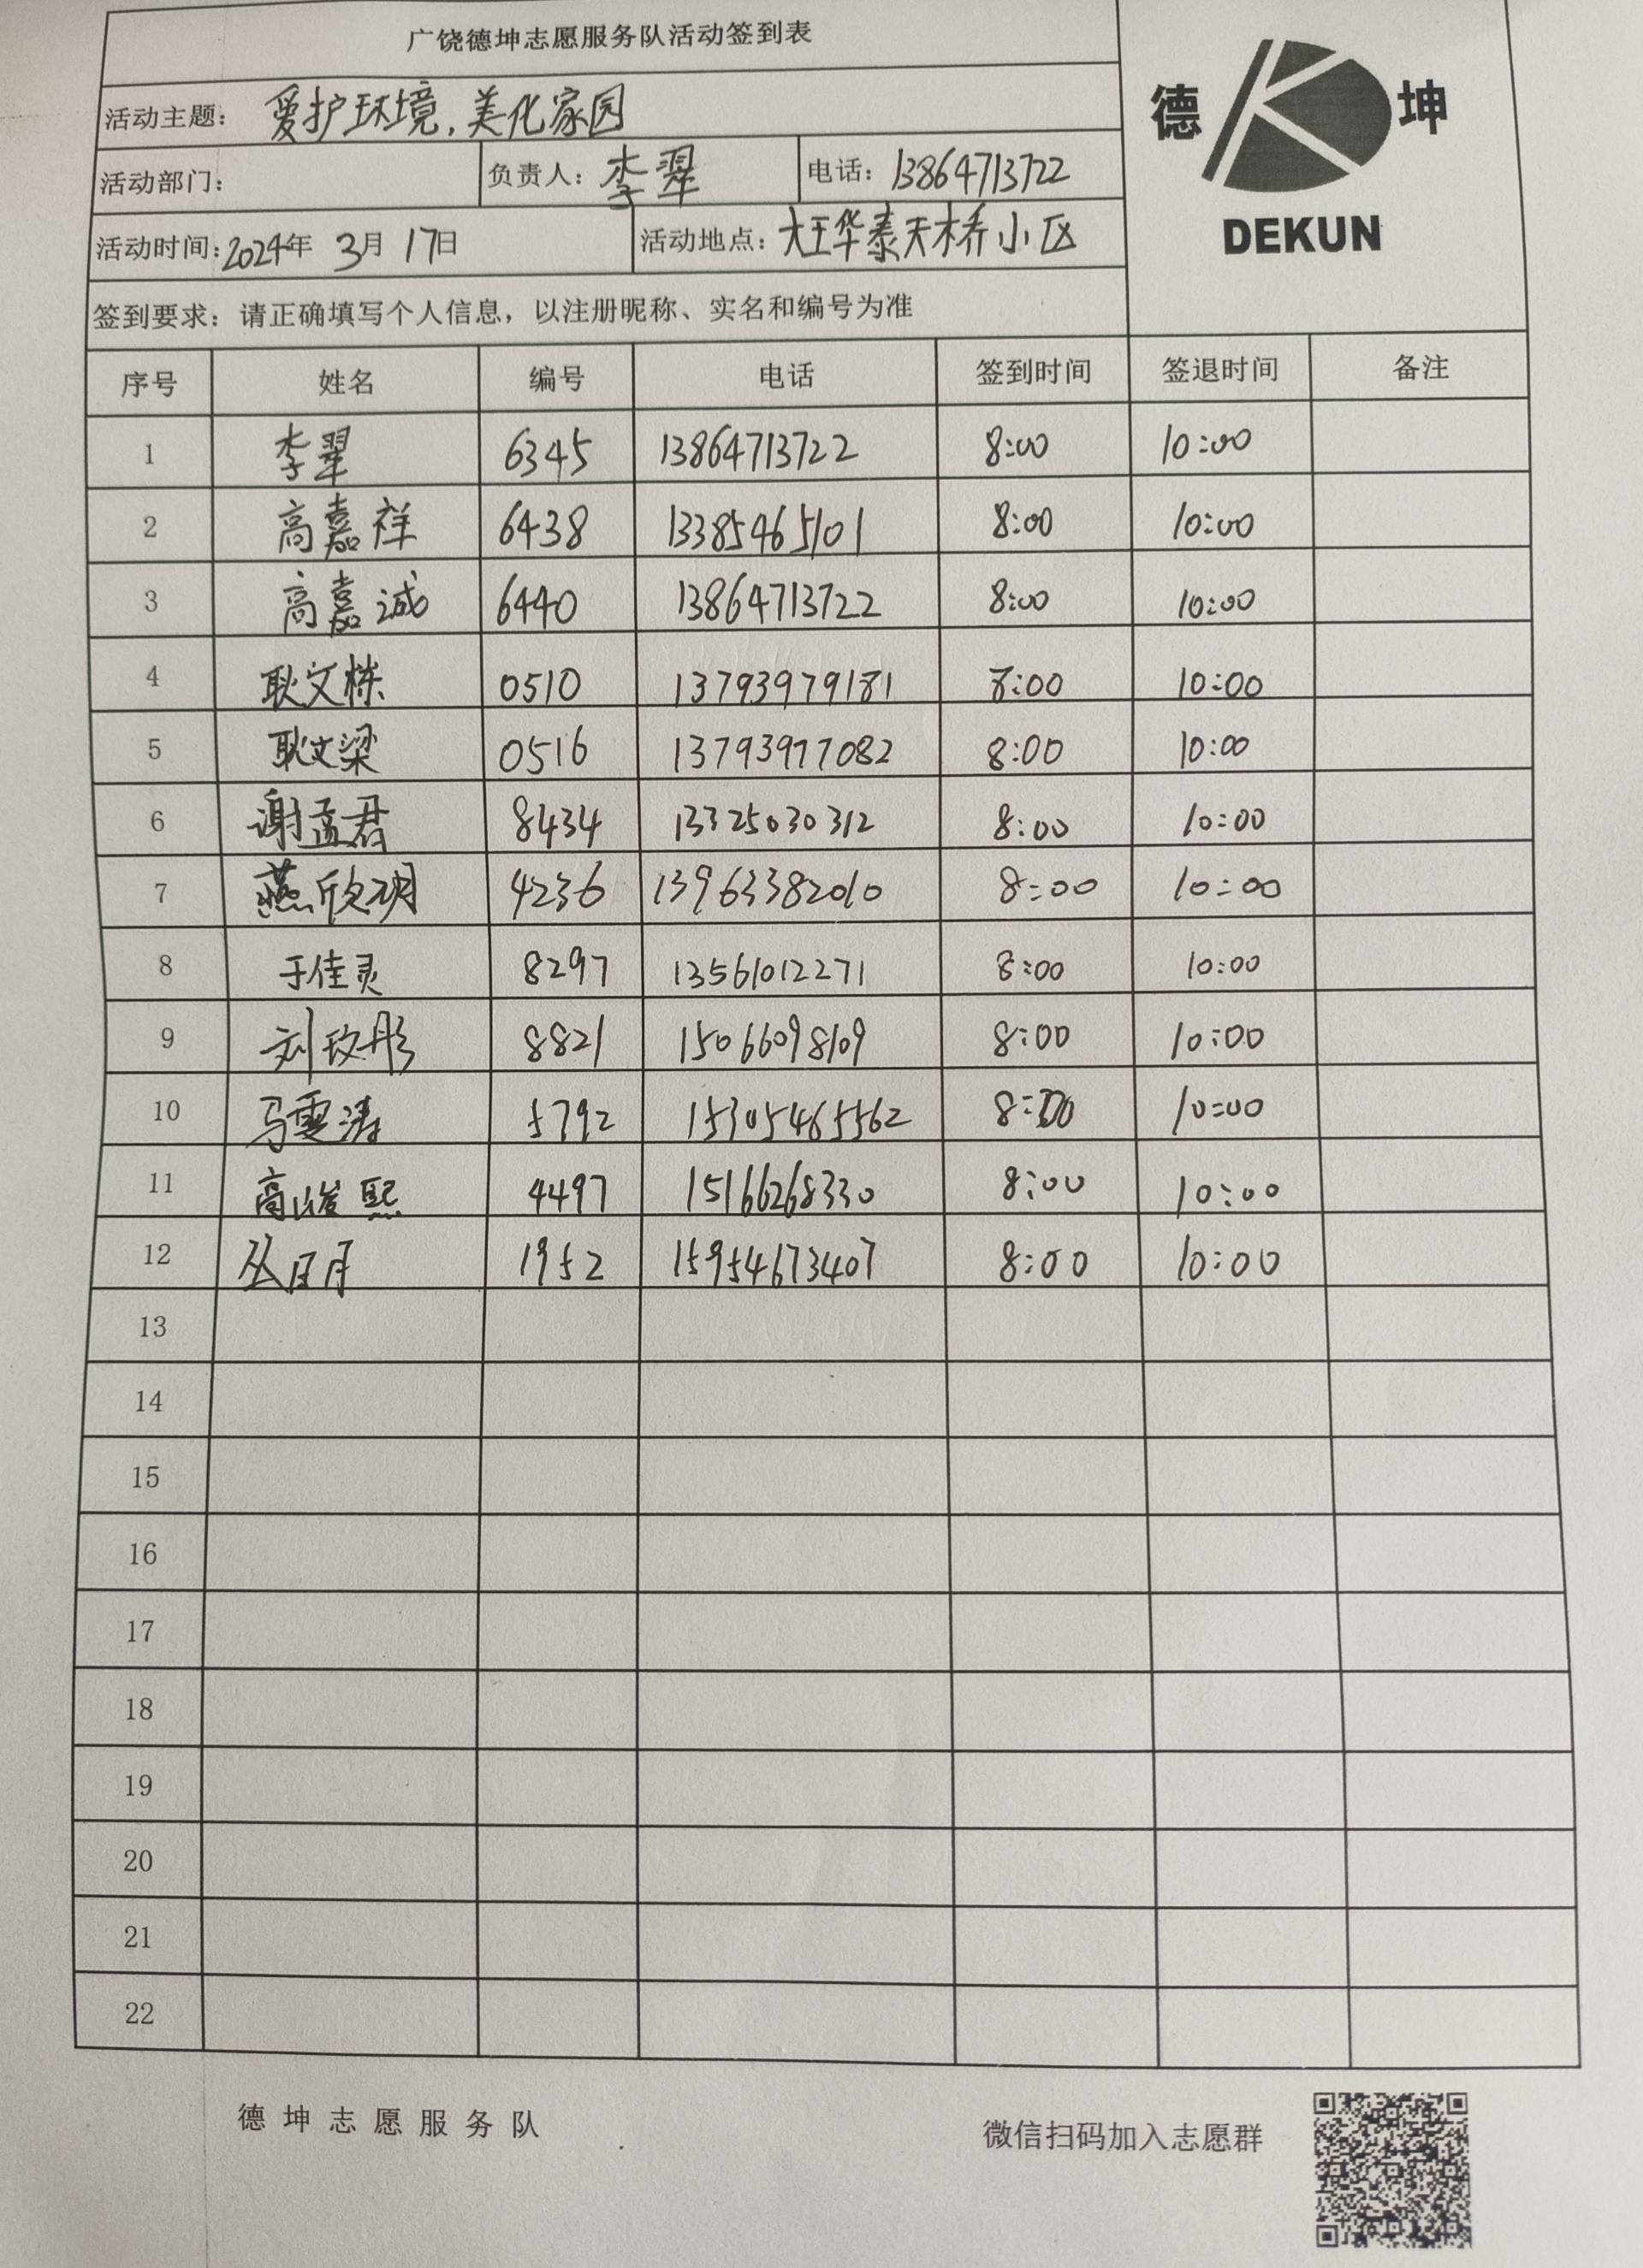 广饶德坤志愿服务队活动签到表
德 坤
DEKUN
活动主题： 爱护环境，美化家园
活动部门： 负责人：李翠 电话：13864713722
活动时间：2024年 3月 17日 活动地点：大王华泰天桥小区
签到要求：请正确填写个人信息，以注册昵称、实名和编号为准
序号 姓名 编号 电话 签到时间 签退时间 备注
1 李翠 6345 13864713722 8:00 10:00
2 高嘉祥 6438 13385465101 8:00 10:00
3 高嘉诚 6440 13864713722 8:00 10:00
4 耿文栋 0510 13793979181 8:00 10:00
5 耿文梁 0516 13793977082 8:00 10:00
6 谢孟君 8434 13325030312 8:00 10:00
7 燕欣玥 4236 13963382010 8:00 10:00
8 于佳灵 8297 13561012271 8:00 10:00
9 刘玟彤 8821 15066098109 8:00 10:00
10 马雯涛 5792 15305465562 8:00 10:00
11 高峻熙 4497 15166268330 8:00 10:00
12 丛日月 1952 15954673407 8:00 10:00
13
14
15
16
17
18
19
20
21
22
德坤志愿服务队 微信扫码加入志愿群